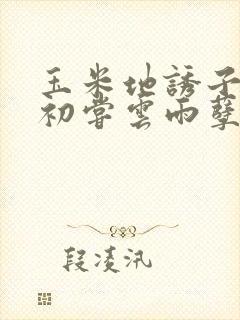 玉米地誘子
初嘗雲雨孽
段凌汛